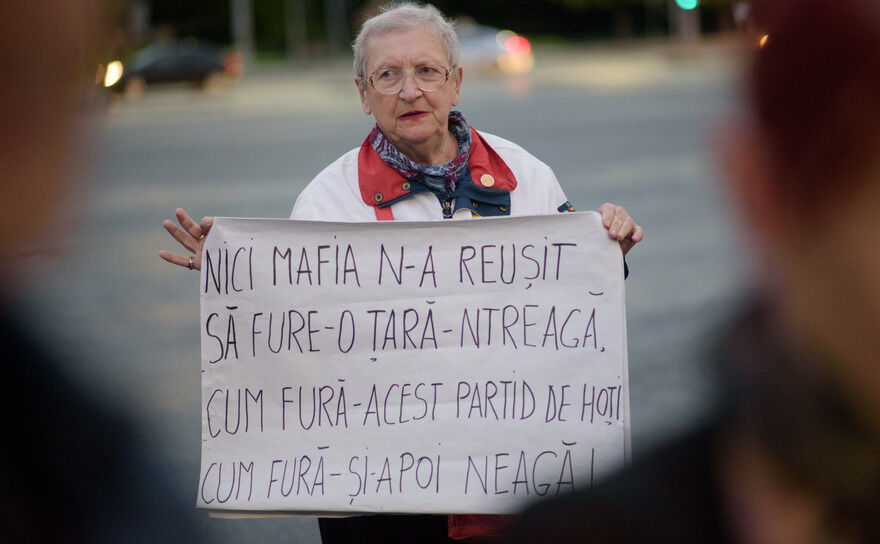 NICI MAFIA N-A REUȘIT
SĂ FURE-O ȚARĂ-NTREAGĂ,
CUM FURĂ-ACEST PARTID DE HOȚI
CUM FURĂ-ȘI-APOI NEAGĂ!